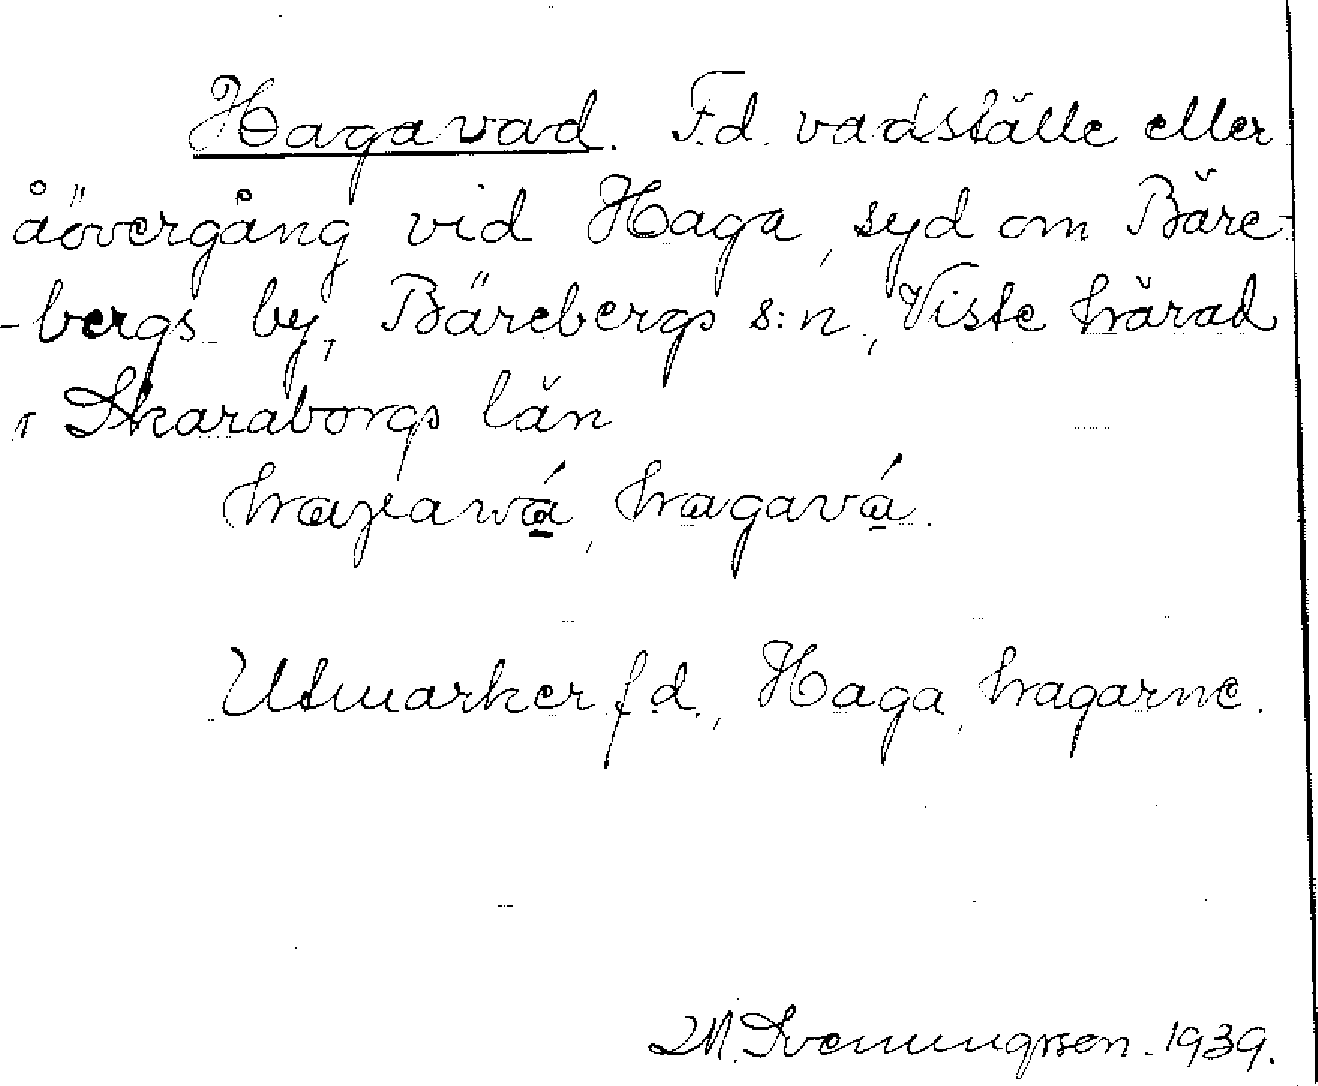 Hagavad. F.d. vadställe eller
åövergång vid Haga, syd om Bäre-
-bergs by, Bärebergs s:n, Viste härad
, Skaraborgs län
hagavá, hagavá.
Utmarker f.d., Haga, hagarne.
M. Svenungsson. 1939.